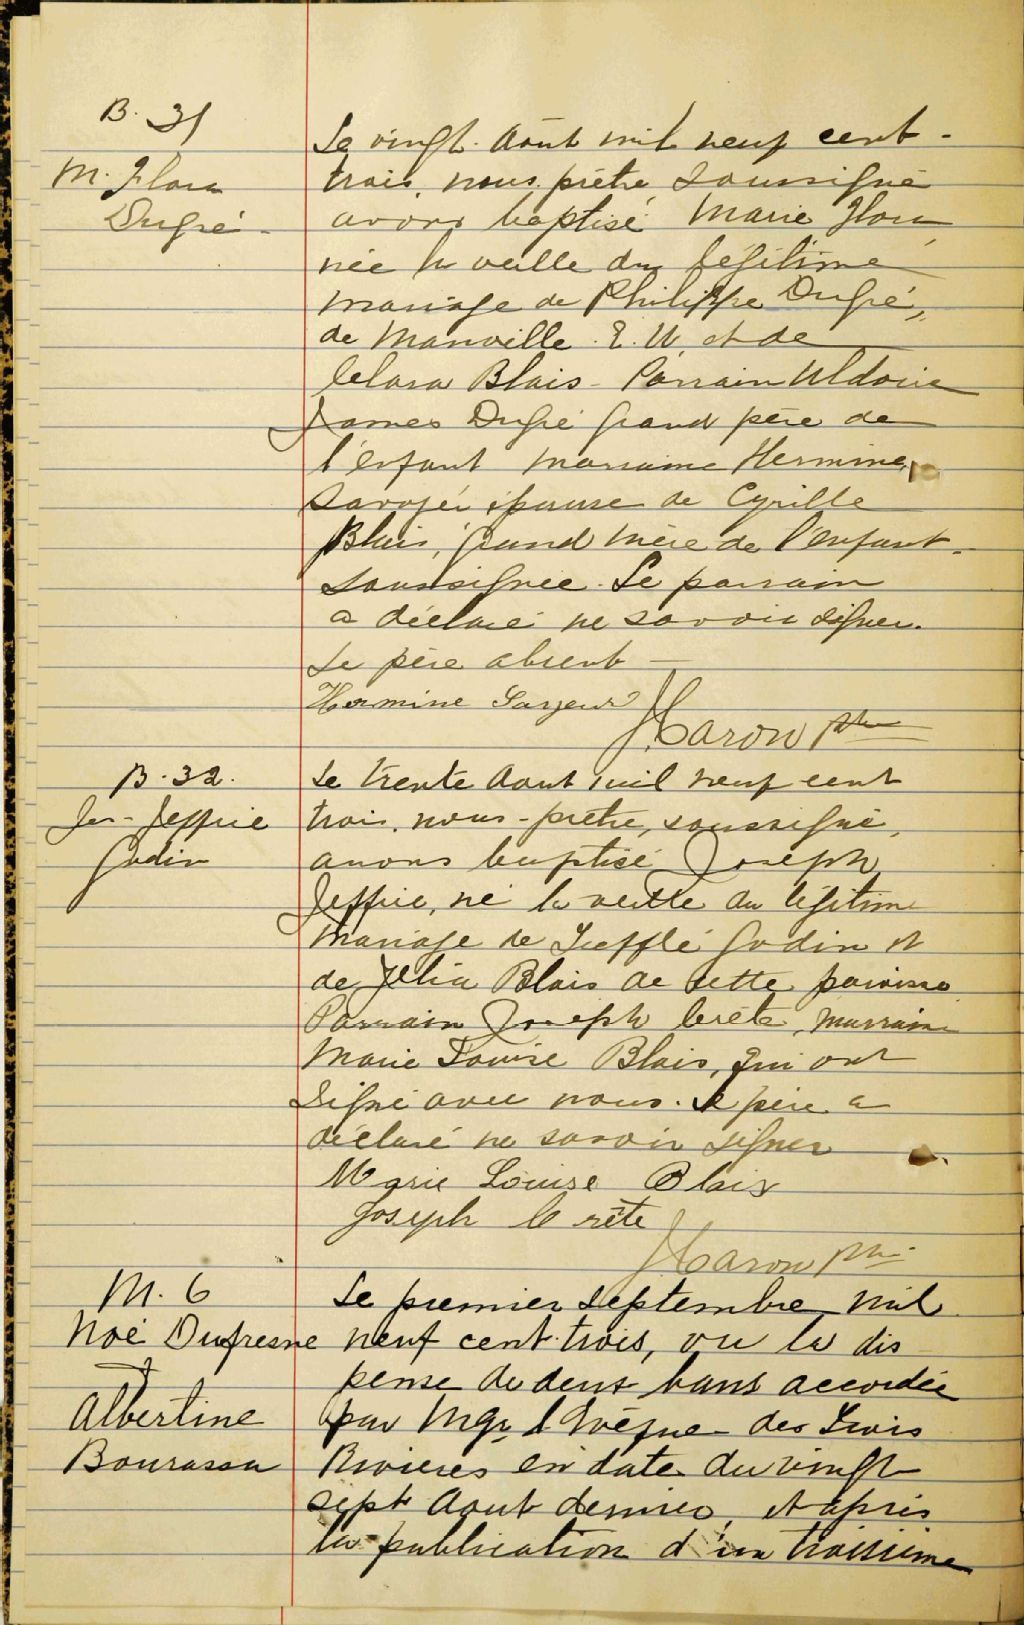 B. 31
M. Flora
Dugré
Le vingt Août mil neuf cent
trois, nous prêtre soussigné
avons baptisé Marie Flora
née la veille du légitime
mariage de Philippe Dugré,
de Manville E. U, et de
Clara Blais - Parrain
James Dugré grand père de
l'enfant marraine Hermine
épouse de Cyrille
Blais, grand mère de l'enfant
soussignée. Le parrain
a déclaré ne savoir signer.
Le père absent
Hermine
J. Caron ptre
B. 32.
Jos - Jeffrie
Godin
Le trente Aout mil neuf cent
trois, nous - prêtre, soussigné,
avons baptisé Joseph
Jeffrie, né la veille du légitime
mariage de Godin et
de Blais de cette paroisse
Parrain Joseph Crête, marraine
Marie Louise Blais, qui ont
signé avec nous. Le père a
déclaré ne savoir signer
Marie Louise Blais
Joseph Crête
J. Caron ptre
M. 6
Noé Dufresne
&
Albertine
Bourassa
Le premier septembre mil
neuf cent trois, vu la dis
pense de deux bans accordée
par Mgr l'Evêque des Trois
Rivières en date du vingt
sept Aout dernier, et après
la publication d'un troisième